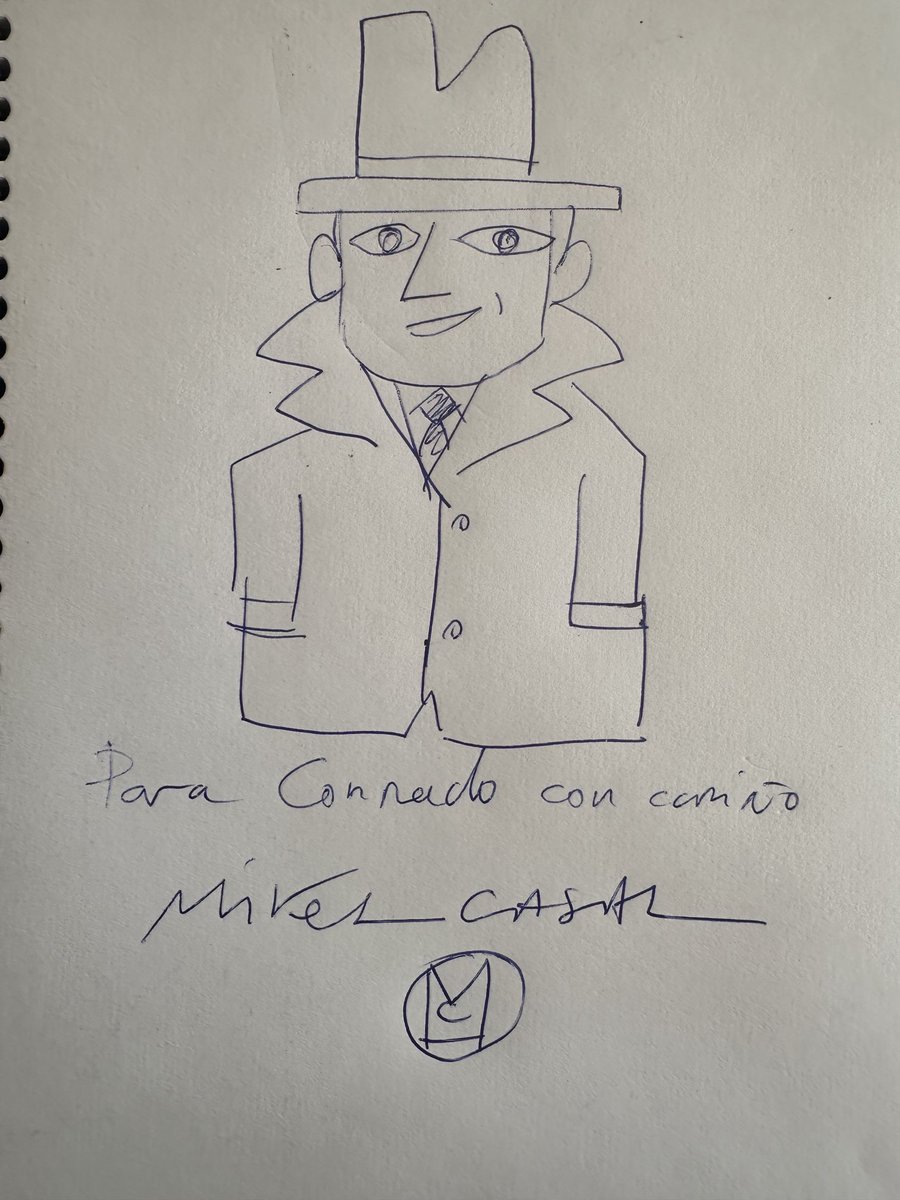 Para Conrado con cariño
Mikel CASAL
MC